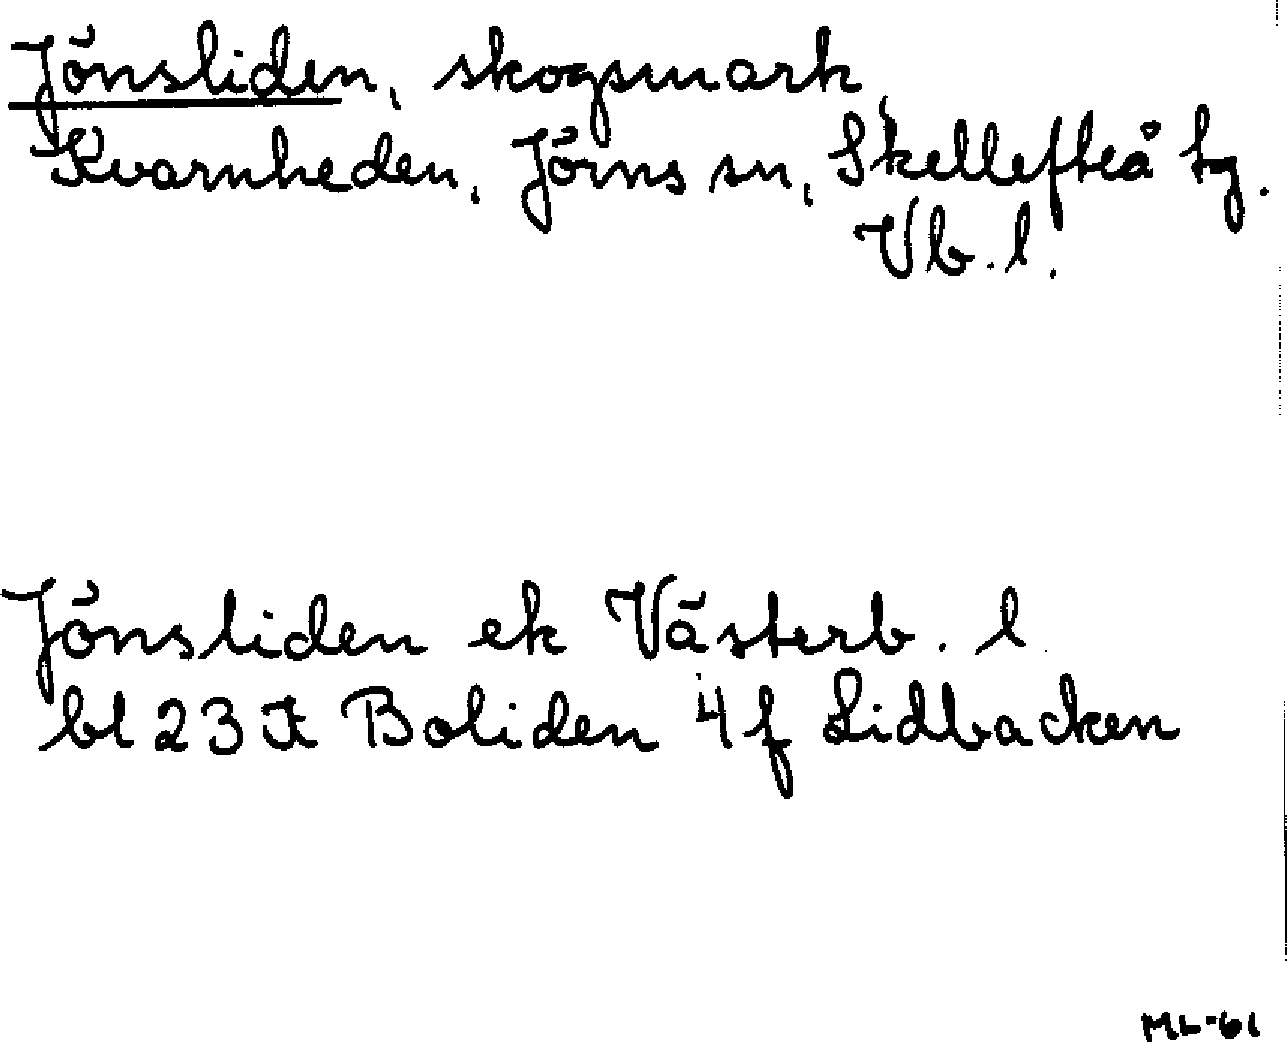 Jönsliden, skogsmark,
Kvarnheden, Jörns sn, Skellefteå tg.
Vb. l.
Jönsliden ek Västerb. l.
bl 23 J Boliden 4 f Lidbacken
ML-61